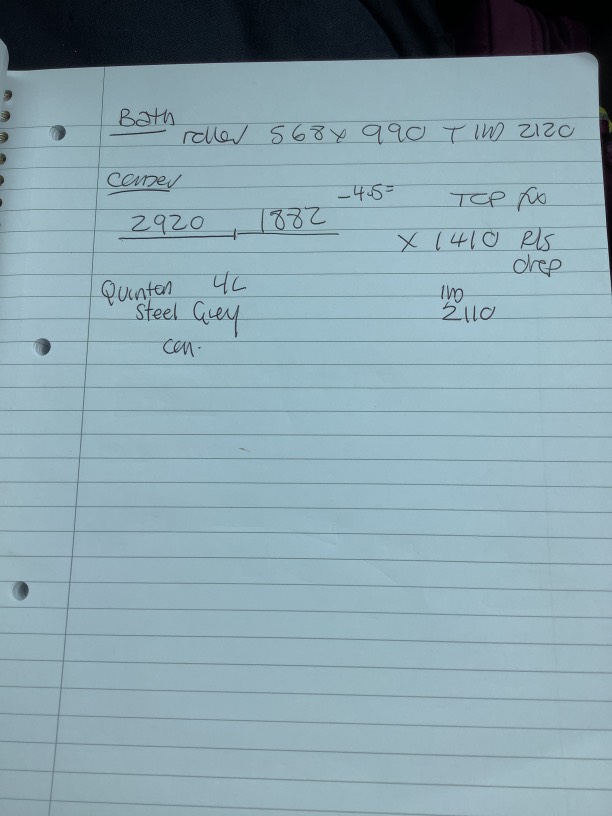 Bath
roller 568 x 990 T IW 2120
Corner
2920 1882 -45= TCP fix
x 1410 Rls
drop
Quinton 4L IW
Steel Grey 2110
con.